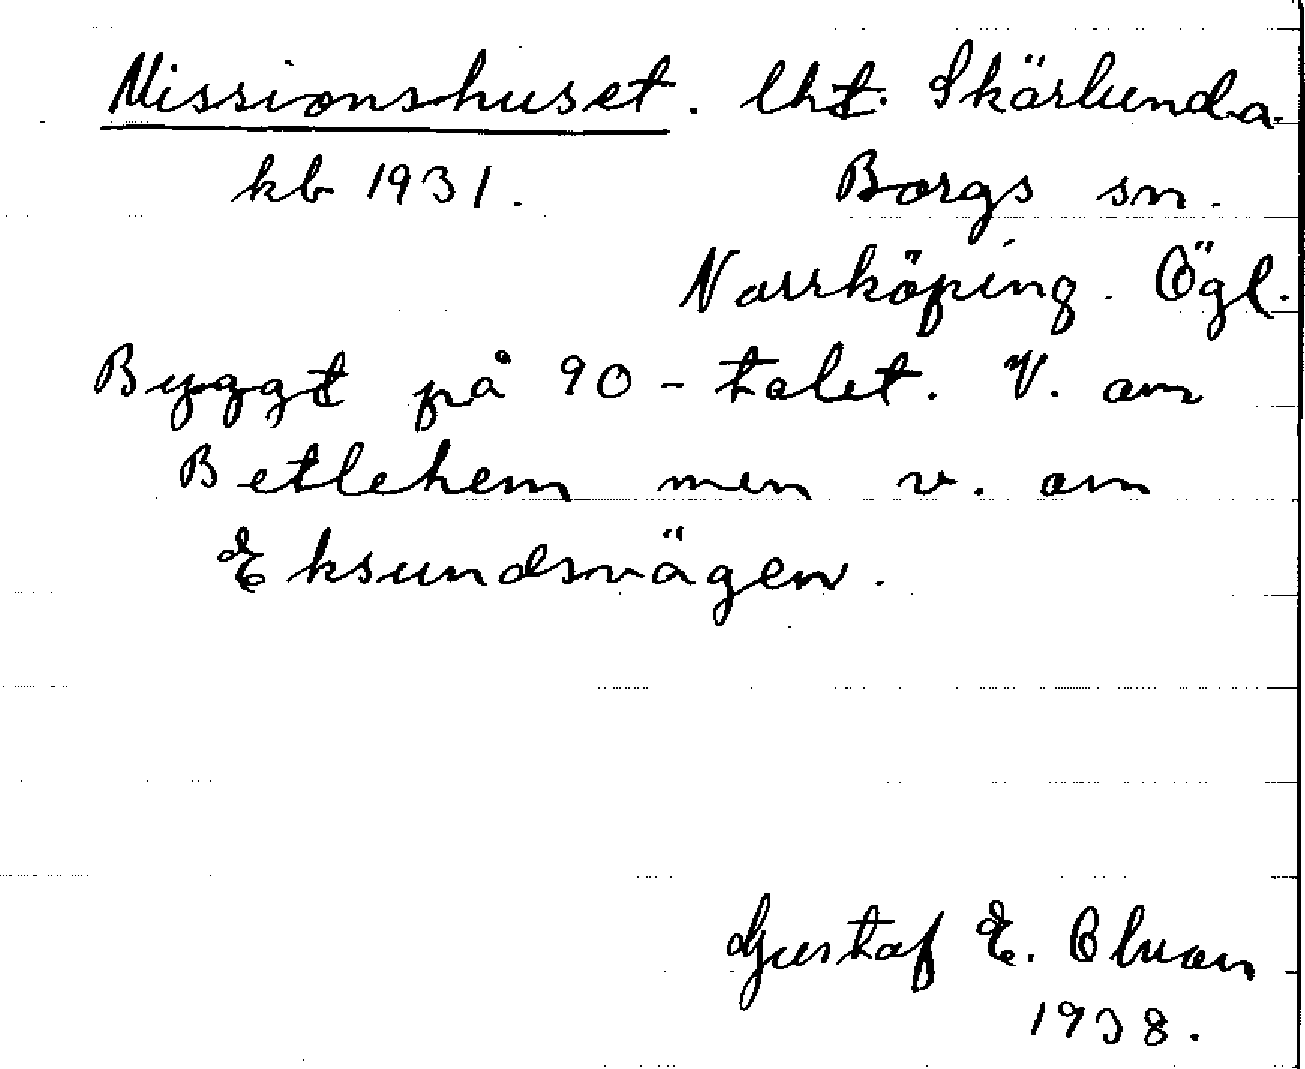 Missionshuset. lht. Skärlunda.
kb 1931. Borgs sn.
Norrköping. Ögl.
Byggt på 90-talet. V. om
Betlehem men v. om
Eksundsvägen.
Gustaf E. Olson
1938.